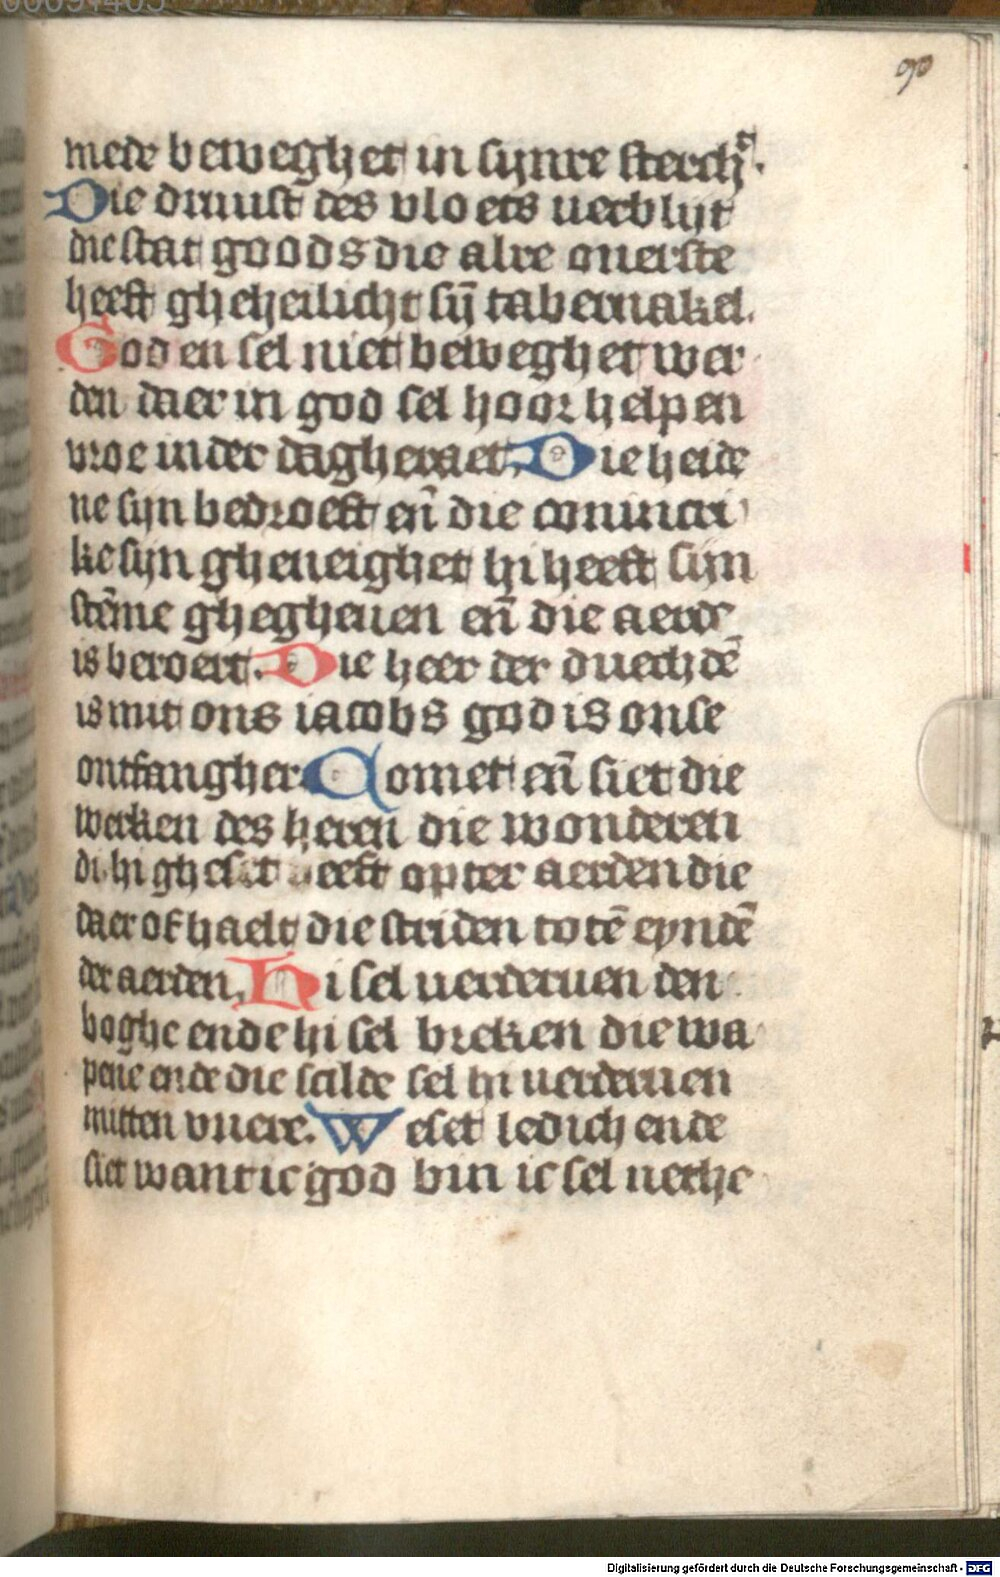 90
mede beweghet in synre sterch͛.
Die druust des vloets verblijt
die stat goods die alre ouerste
heeft gheheilicht sȳ tabernakel.
God en sel niet beweghet wer
den daer in god sel hoor helpen
vroe in der dagheraet. Die heide
ne syn bedroeft en̄ die conincri
ke syn gheneighet hi heeft syn
stēme ghegheuen en̄ die aerde
is beroert. Die heer der duechdē
is mit ons iacobs god is onse
ontfangher Comet en̄ siet die
werken des heren die wonderen
di hi gheset heeft opter aerden die
daer of haelt die striden totē eyndē
der aerden. Hi sel uerderuen den
boghe ende hi sel breken die wa
pene ende die scilde sel hi uerderuen
mitten vuere. Weset ledich ende
siet want ic god bin ic sel uerhe
Digitalisierung gefördert durch die Deutsche Forschungsgemeinschaft - DFG